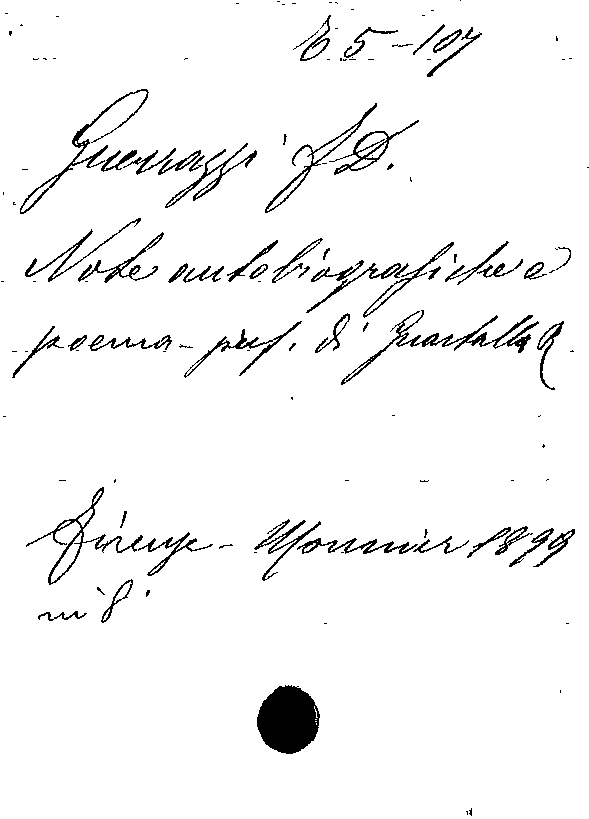 E 5-107
Guerrazzi F D.
Note autobiografiche e
poema - pref. di Guastalla R
Firenze - Monnier 1899
in 8°